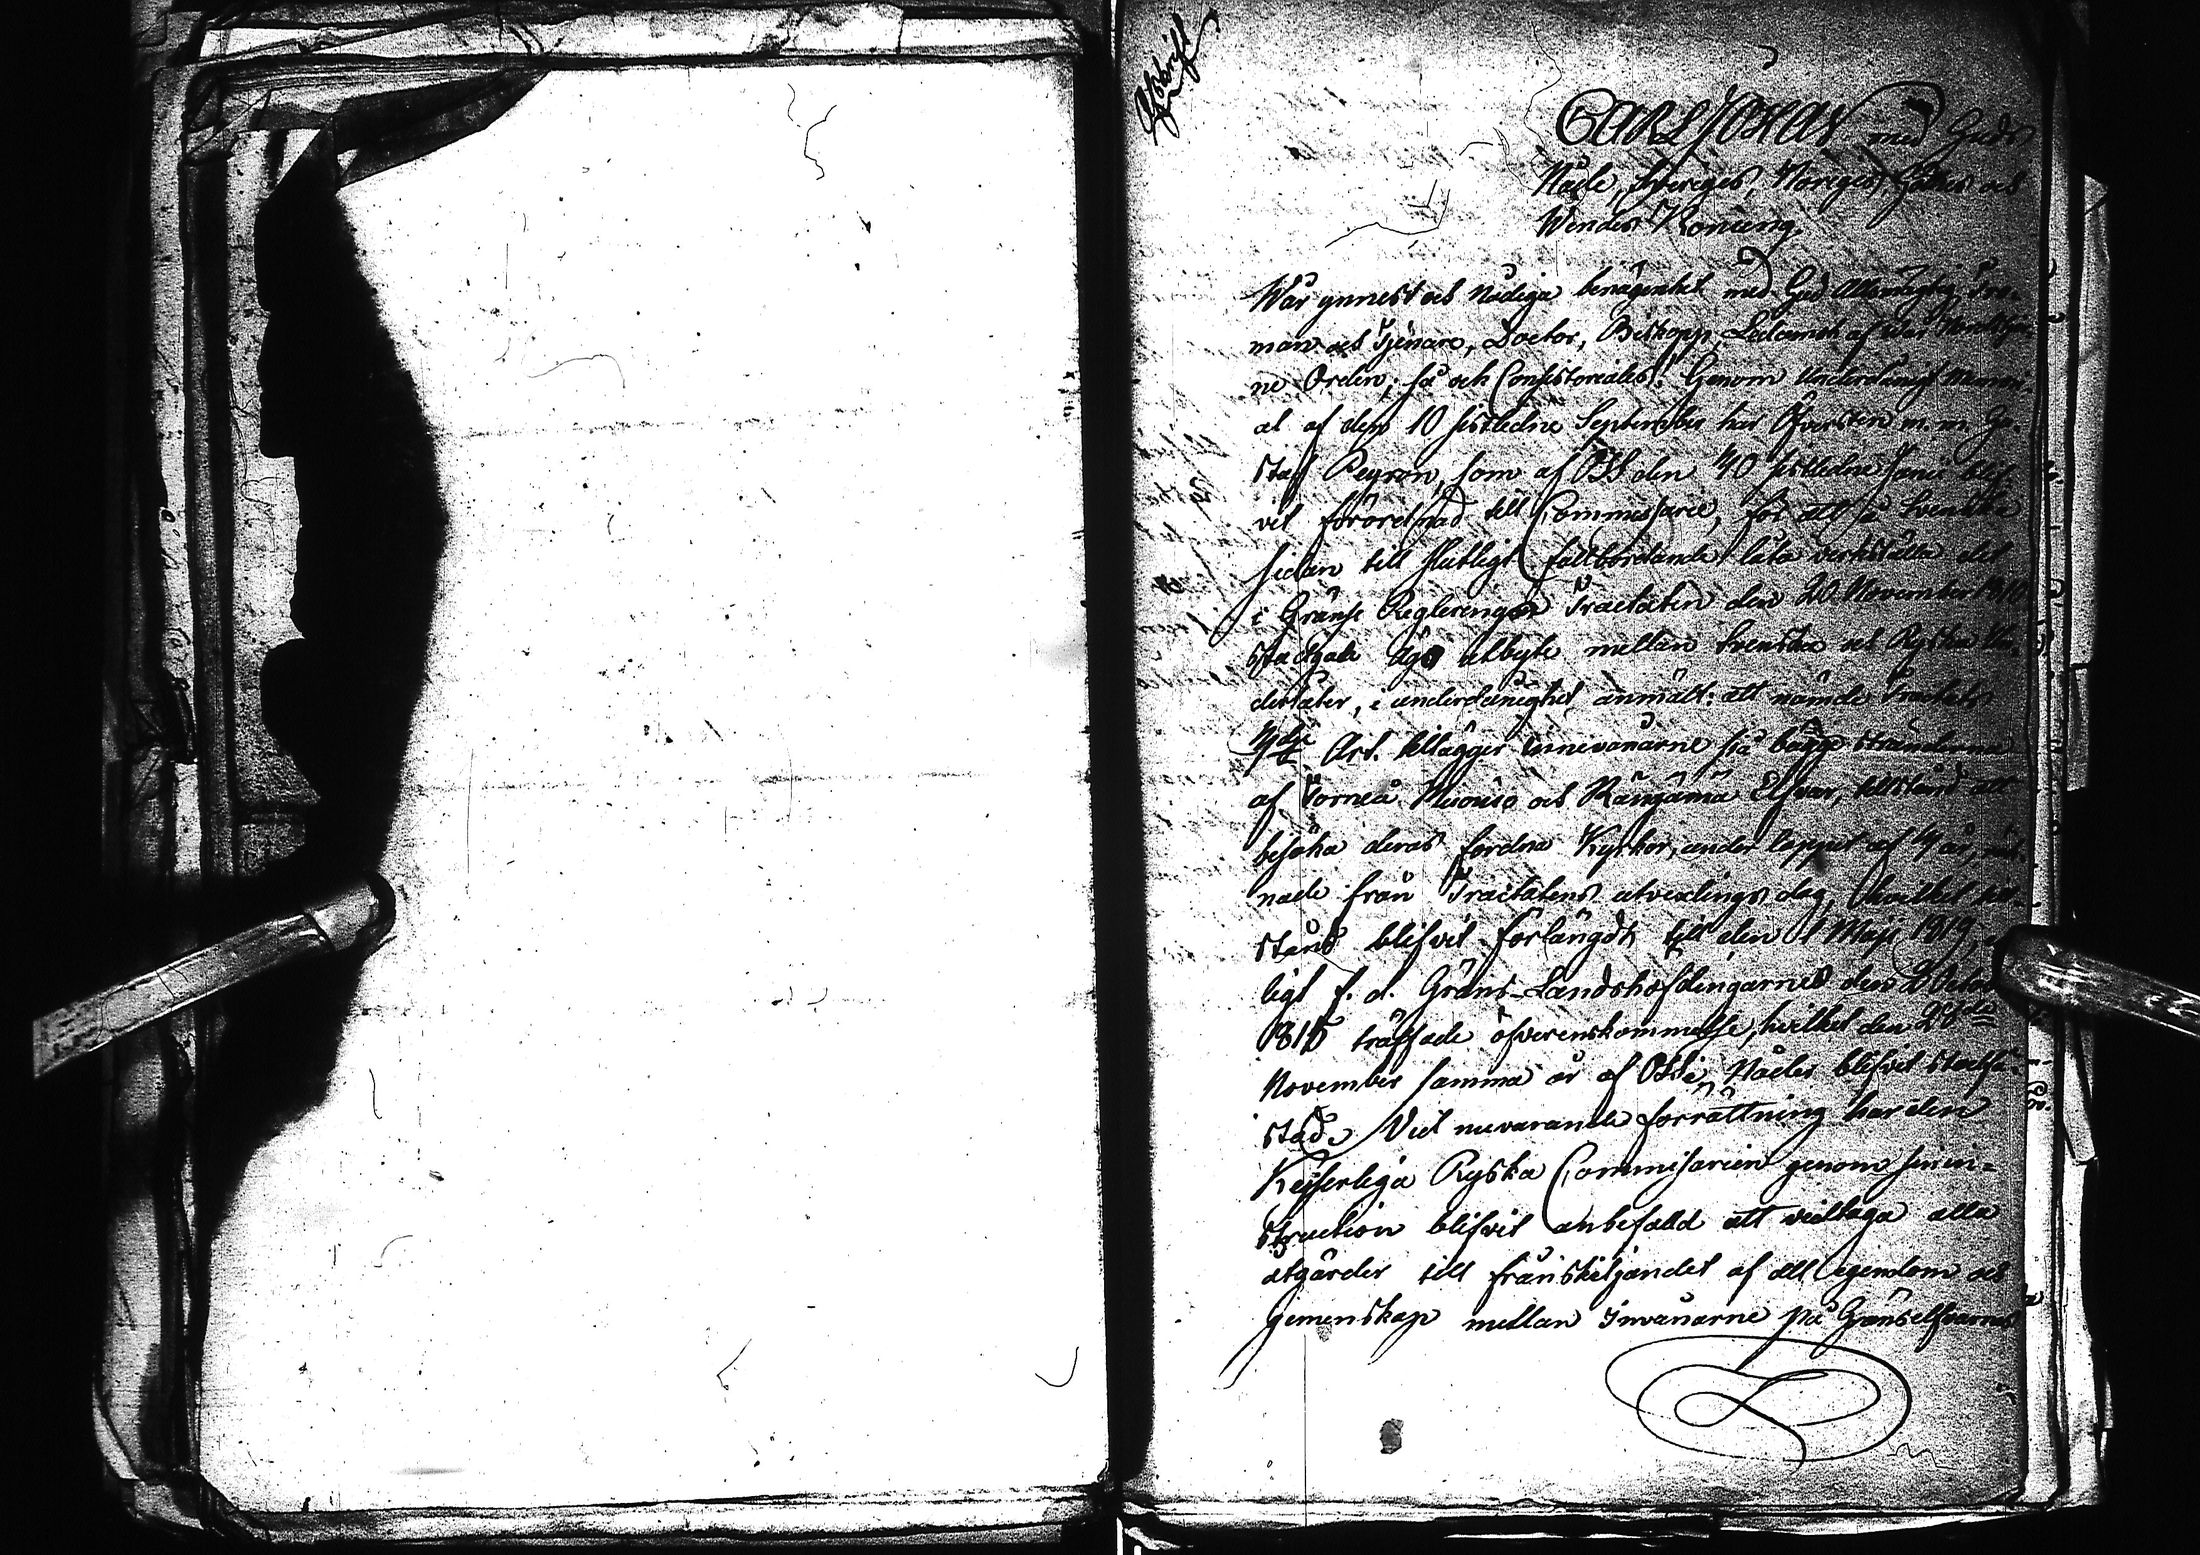 Afskrift
CARL JOHAN med Guds
Nåde, Sveriges, Norriges, Göthes och
Wendes Konung.
Wår ynnest och Nådiga benägenhet med Gud Allsmägtig, Tro-
man och Tjenare, Doctor, Biskopp, Ledamot af Wår Nordstjer-
ne Orden; så och Consistoriales! Genom underdånigt Memori-
al af den 10 sistledne September har Öfversten m. m. Gu-
staf Peyron, som af Oss den 10 sistledne Junii blif-
vit förordnad till Commissarie, för att å Svenska
sidan till slutligt fullbordande låta verkställa det
i Gräns Reglerings Tractaten den 20 November 1810
stadgade ägo utbyte mellan Svenska och Ryska Un-
dersåter, i underdånighet anmält: att nämde Tractats
4de Art. tillägger Innevånarne på bägge stränderna
af Torneå Muonio och Köngämä Elfvar, tillstånd att
besöka deras fordna Kyrkor, under loppet af 4 år, räk-
nade från Tractatens utvexlings dag, hvilket till-
stånd blifvit förlängdt till den 1 Maji 1819, en-
ligt f. d. Gräns-Landshöfdingarnes den Octob
1815 träffade öfverenskommelse, hvilket den 28de
November samma år af Oss i Nåder blifvit stadfä-
stad. Vid nuvarande förrättning har den
Kejserliga Ryska Commissarien genom sin in-
struction blifvit anbefalld att vidtaga alla
åtgärder till frånskiljandet af all egendom och
gemenskap mellan Invånarne på Gränselfvarnes